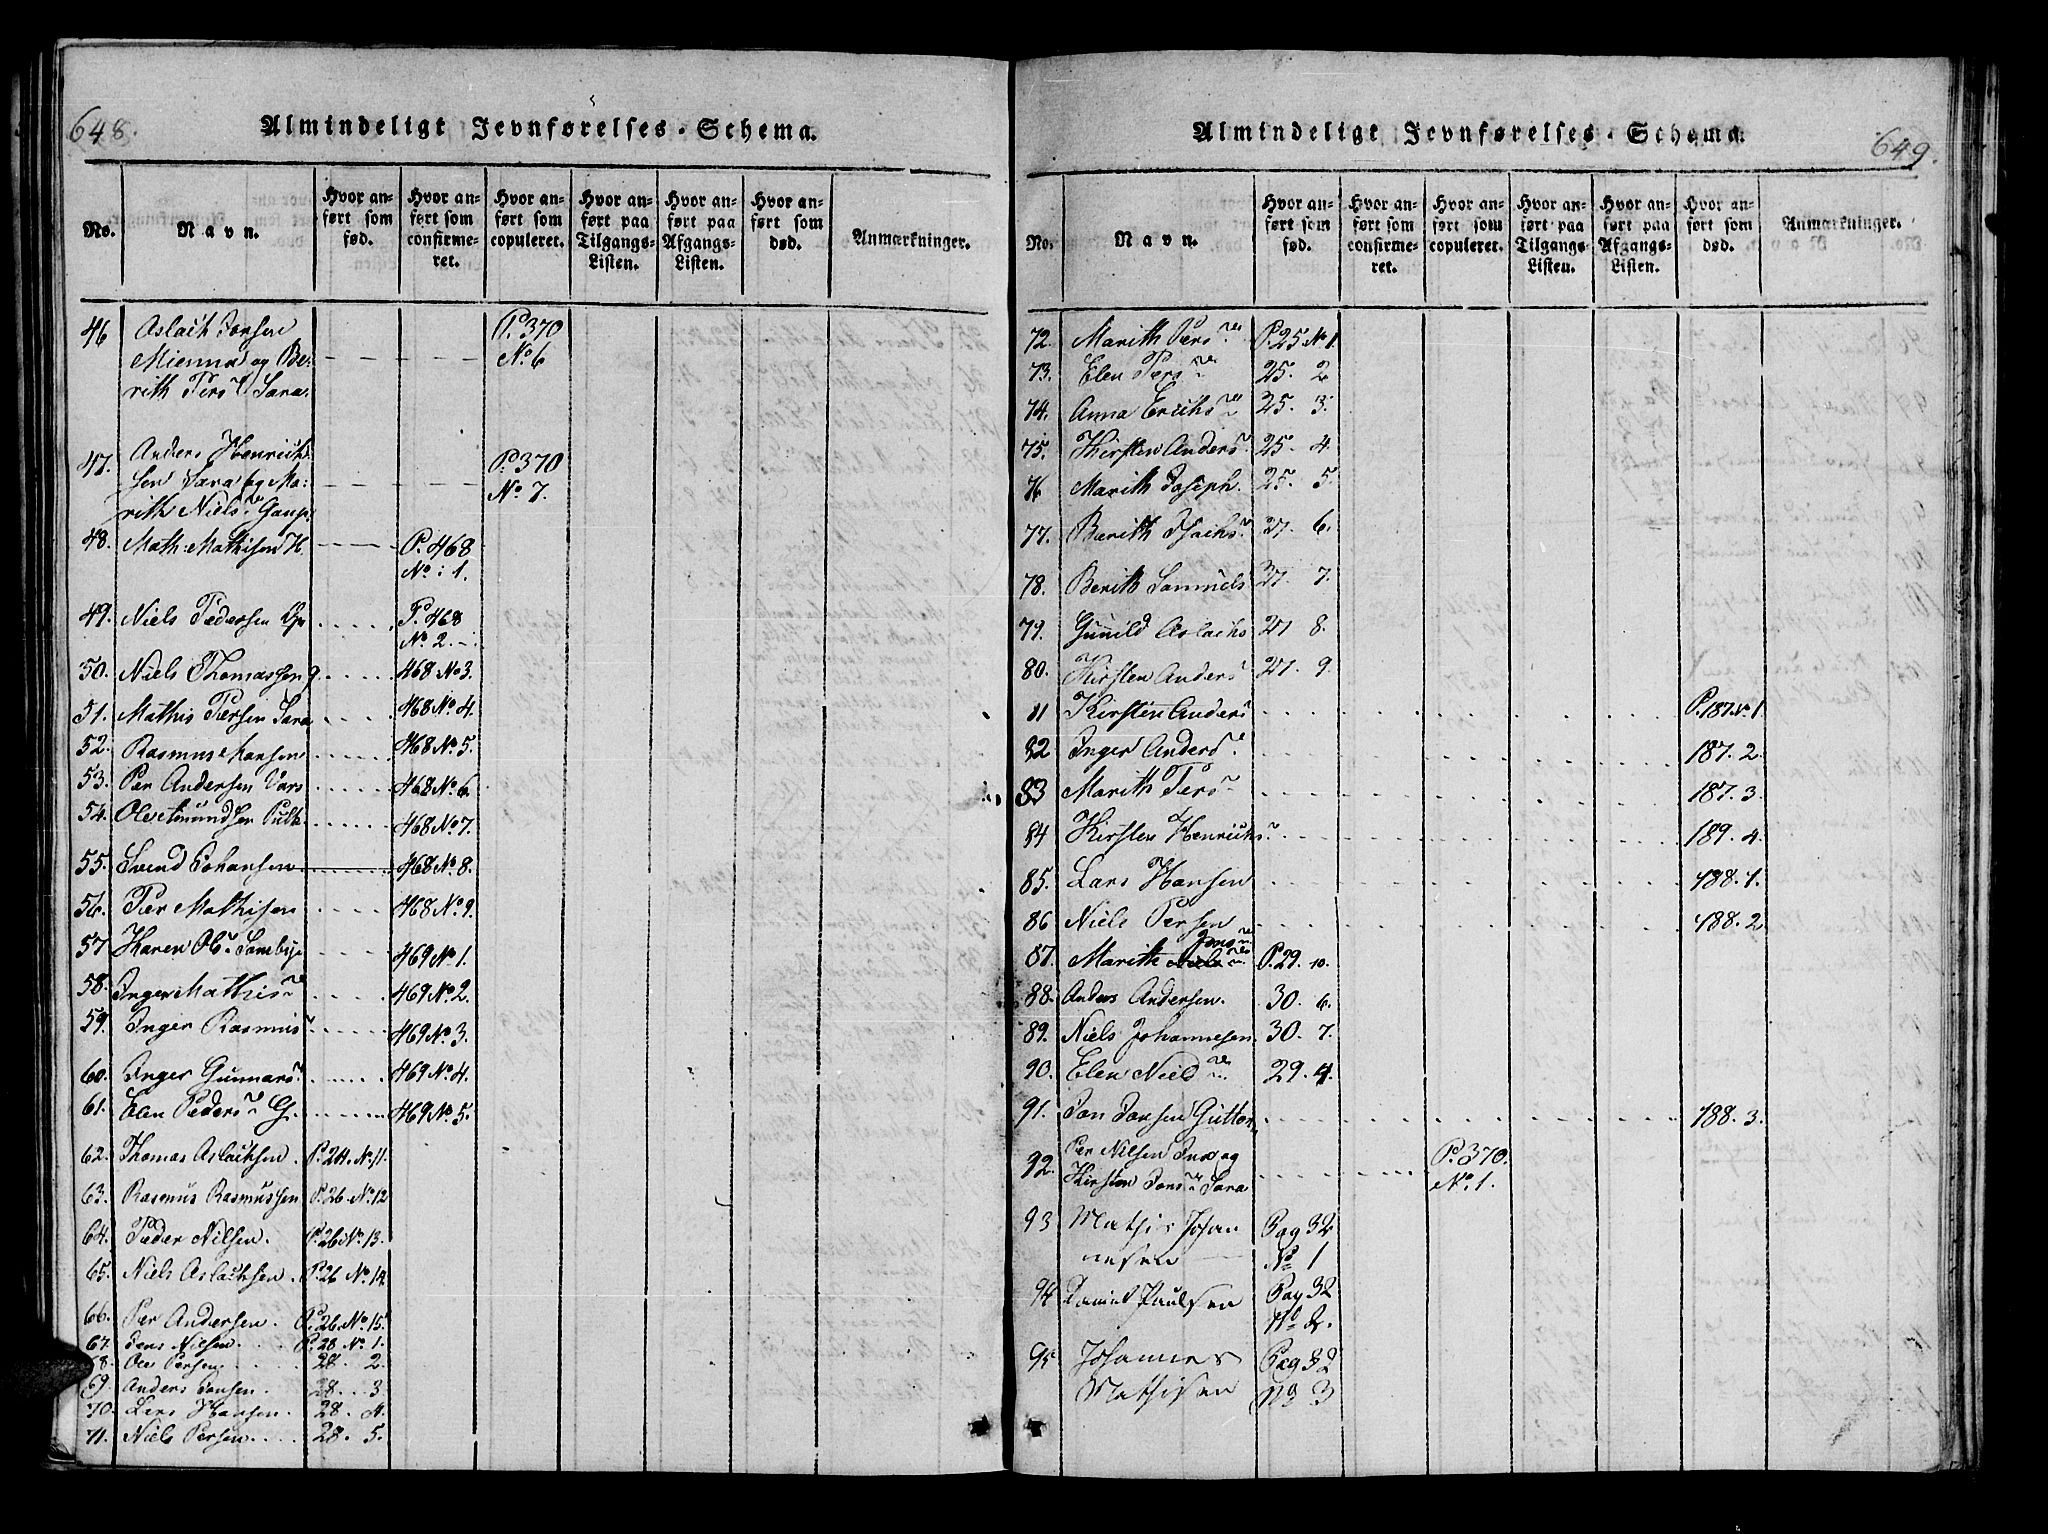 648.
Almindeligt Jevnførelses-Schema.
No.
Navn.
Hvor anført som fød.
Hvor anført som confirmeret.
Hvor anført som copuleret.
Hvor anført paa Tilgangs-Listen.
Hvor anført paa Afgangs-Listen.
Hvor anført som død.
Anmarkninger.
46 Aslach Jonsen P. 370
Mienna og Be- No. 6
rith Pers. Sara.
47. Anders Henrich-
sen Sara og Ma- P. 370
rith Niels. Gaup. No. 7.
48. Math: Mathisen H. P. 468
No: 1.
49. Niels Pedersen P. 468
No. 2.
50. Niels Thomassen 468 No 3.
51. Mathis Persen Sara 468 No. 4.
52. Rasmus Hansen 468 No. 5.
53. Per Andersen Vars 468 No. 6.
54. Ole Amundsen Pulk. 468 No. 7.
55. Svend Johansen 468 No. 8.
56. Per Mathisen 468 No. 9.
57 Karen Ols. 469 No 1.
58. Inger Mathis 469 No 2.
59. Inger Rasmus 469 No 3.
60. Inger Gunnars. 469 No 4.
61. Elen Peders G. 469 No. 5.
62. Thomas Aslachsen. P. 24. No. 11.
63. Rasmus Rasmussen P. 26. No. 12
64. Peder Nilsen. P. 26 No. 13.
65. Niels Aslachsen. P. 26 No. 14
66. Per Andersen. P. 26. No. 15.
67. Jens Nilsen. P. 28 No. 1.
68. Ole Persen. 28. 2.
69. Anders Jonsen. 28. 3
70. Lars Hansen. 28. 4.
71. Niels Persen. 28. 5.
Almindeligt Jevnførelses-Schema.
649.
No.
Navn.
Hvor anført som fød.
Hvor anført som confirmeret.
Hvor anført som copuleret.
Hvor anført paa Tilgangs-Listen.
Hvor anført paa Afgangs-Listen.
Hvor anført som død.
Anmarkninger.
72. Marith Pers. P. 25 No 1.
73. Elen Pers 25. 2
74. Anna Erichs 25. 3.
75. Kirsten Anders 25. 4
76 Marith Joseph. 25. 5.
77. Berith Isachs. 27. 6.
78. Berith Samuels 27. 7.
79. Gunild Aslachs 27 8.
80. Kirsten Anders 27. 9.
81 Kirsten Anders P. 187. No. 1.
82 Inger Anders 187. 2.
83 Marith Pers 187. 3.
84 Kirsten Henrichs. 189. 4.
85. Lars Hansen 188. 1.
86 Niels Persen 188. 2
87. Marith Niels Jons P. 29. 10.
88. Anders Andersen. 30. 6.
89. Niels Johannesen 30. 7.
90. Elen Niels 29. 4.
91. Jon Jonsen Guttor 188. 3.
92. Per Nilsen og P. 370.
Kirsten Jons. Sara No. 1.
93 Mathis Johan Pag 32
nesen No 1
94 Daniel Paulsen Pag 32
No 2.
95 Johannes Pag 32
Mathisen No 3